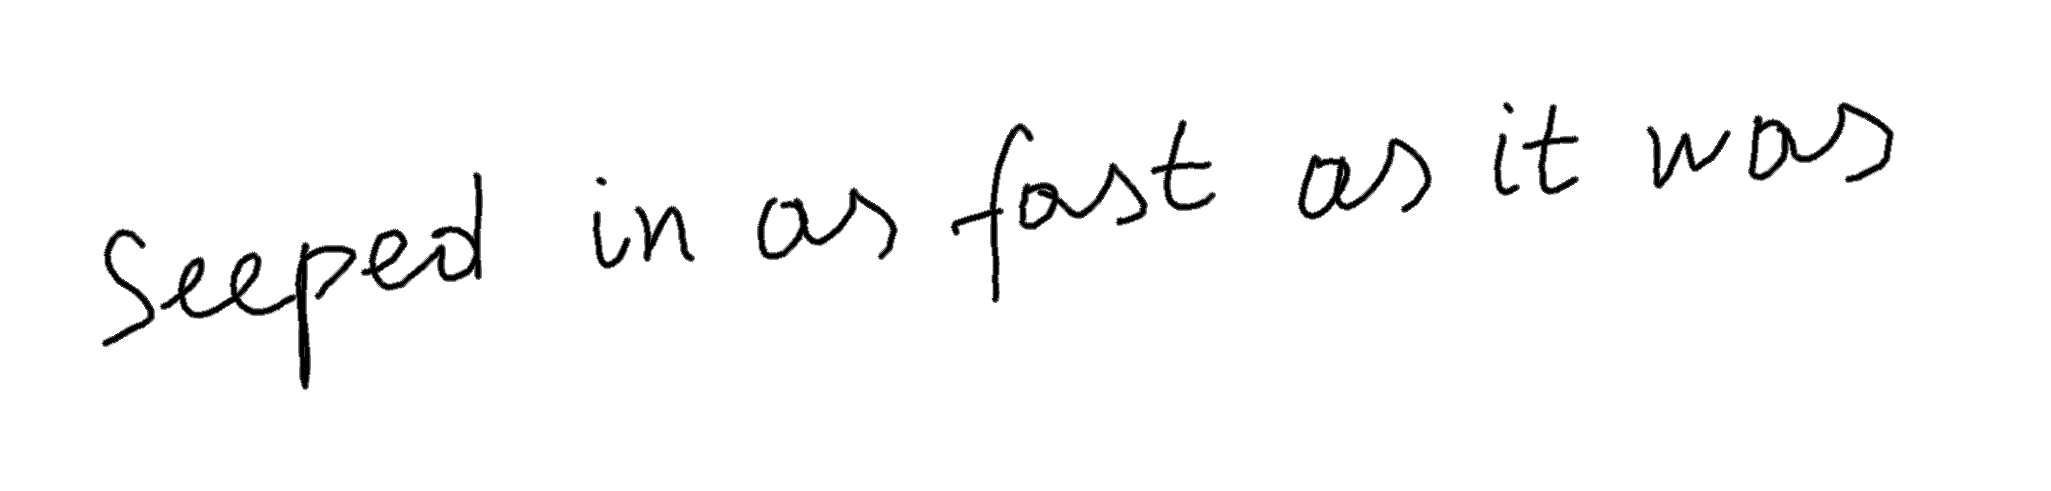 Seeped in as fast as it was